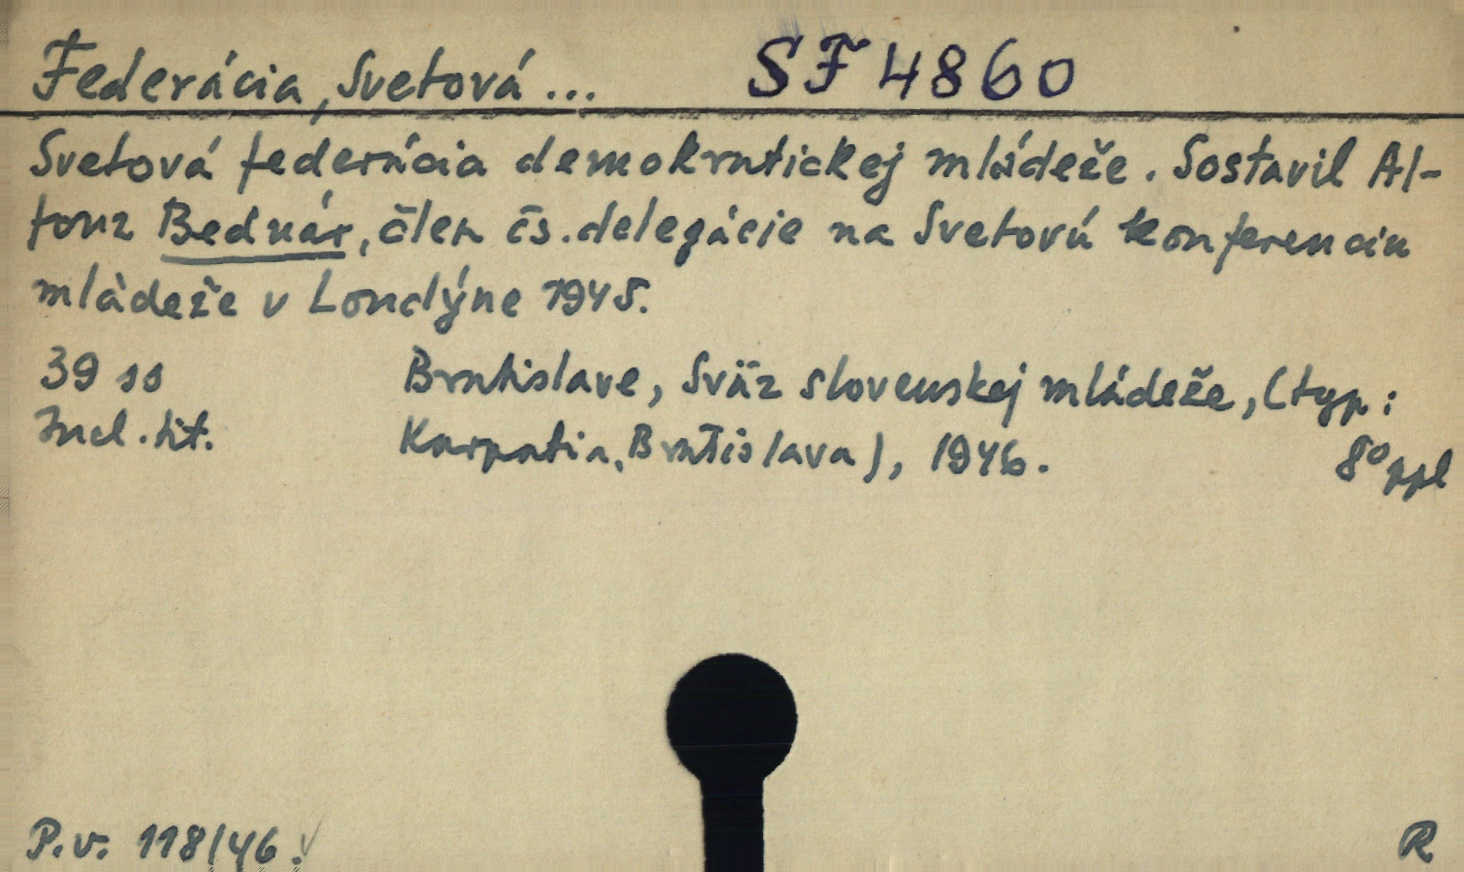 Federácia, Svetová ... SF 4860
Svetová federácia demokratickej mládeže. Sostavil Al-
fonz Bednár, člen čs. delegácie na Svetovú konferenciu
mládeže v Londýne 1945.
39 ss Bratislave, Sväz slovenskej mládeže, (typ:
Incl. tit. Karpatia, Bratislava), 1946. 8° ppl
P.v. 118/46. R